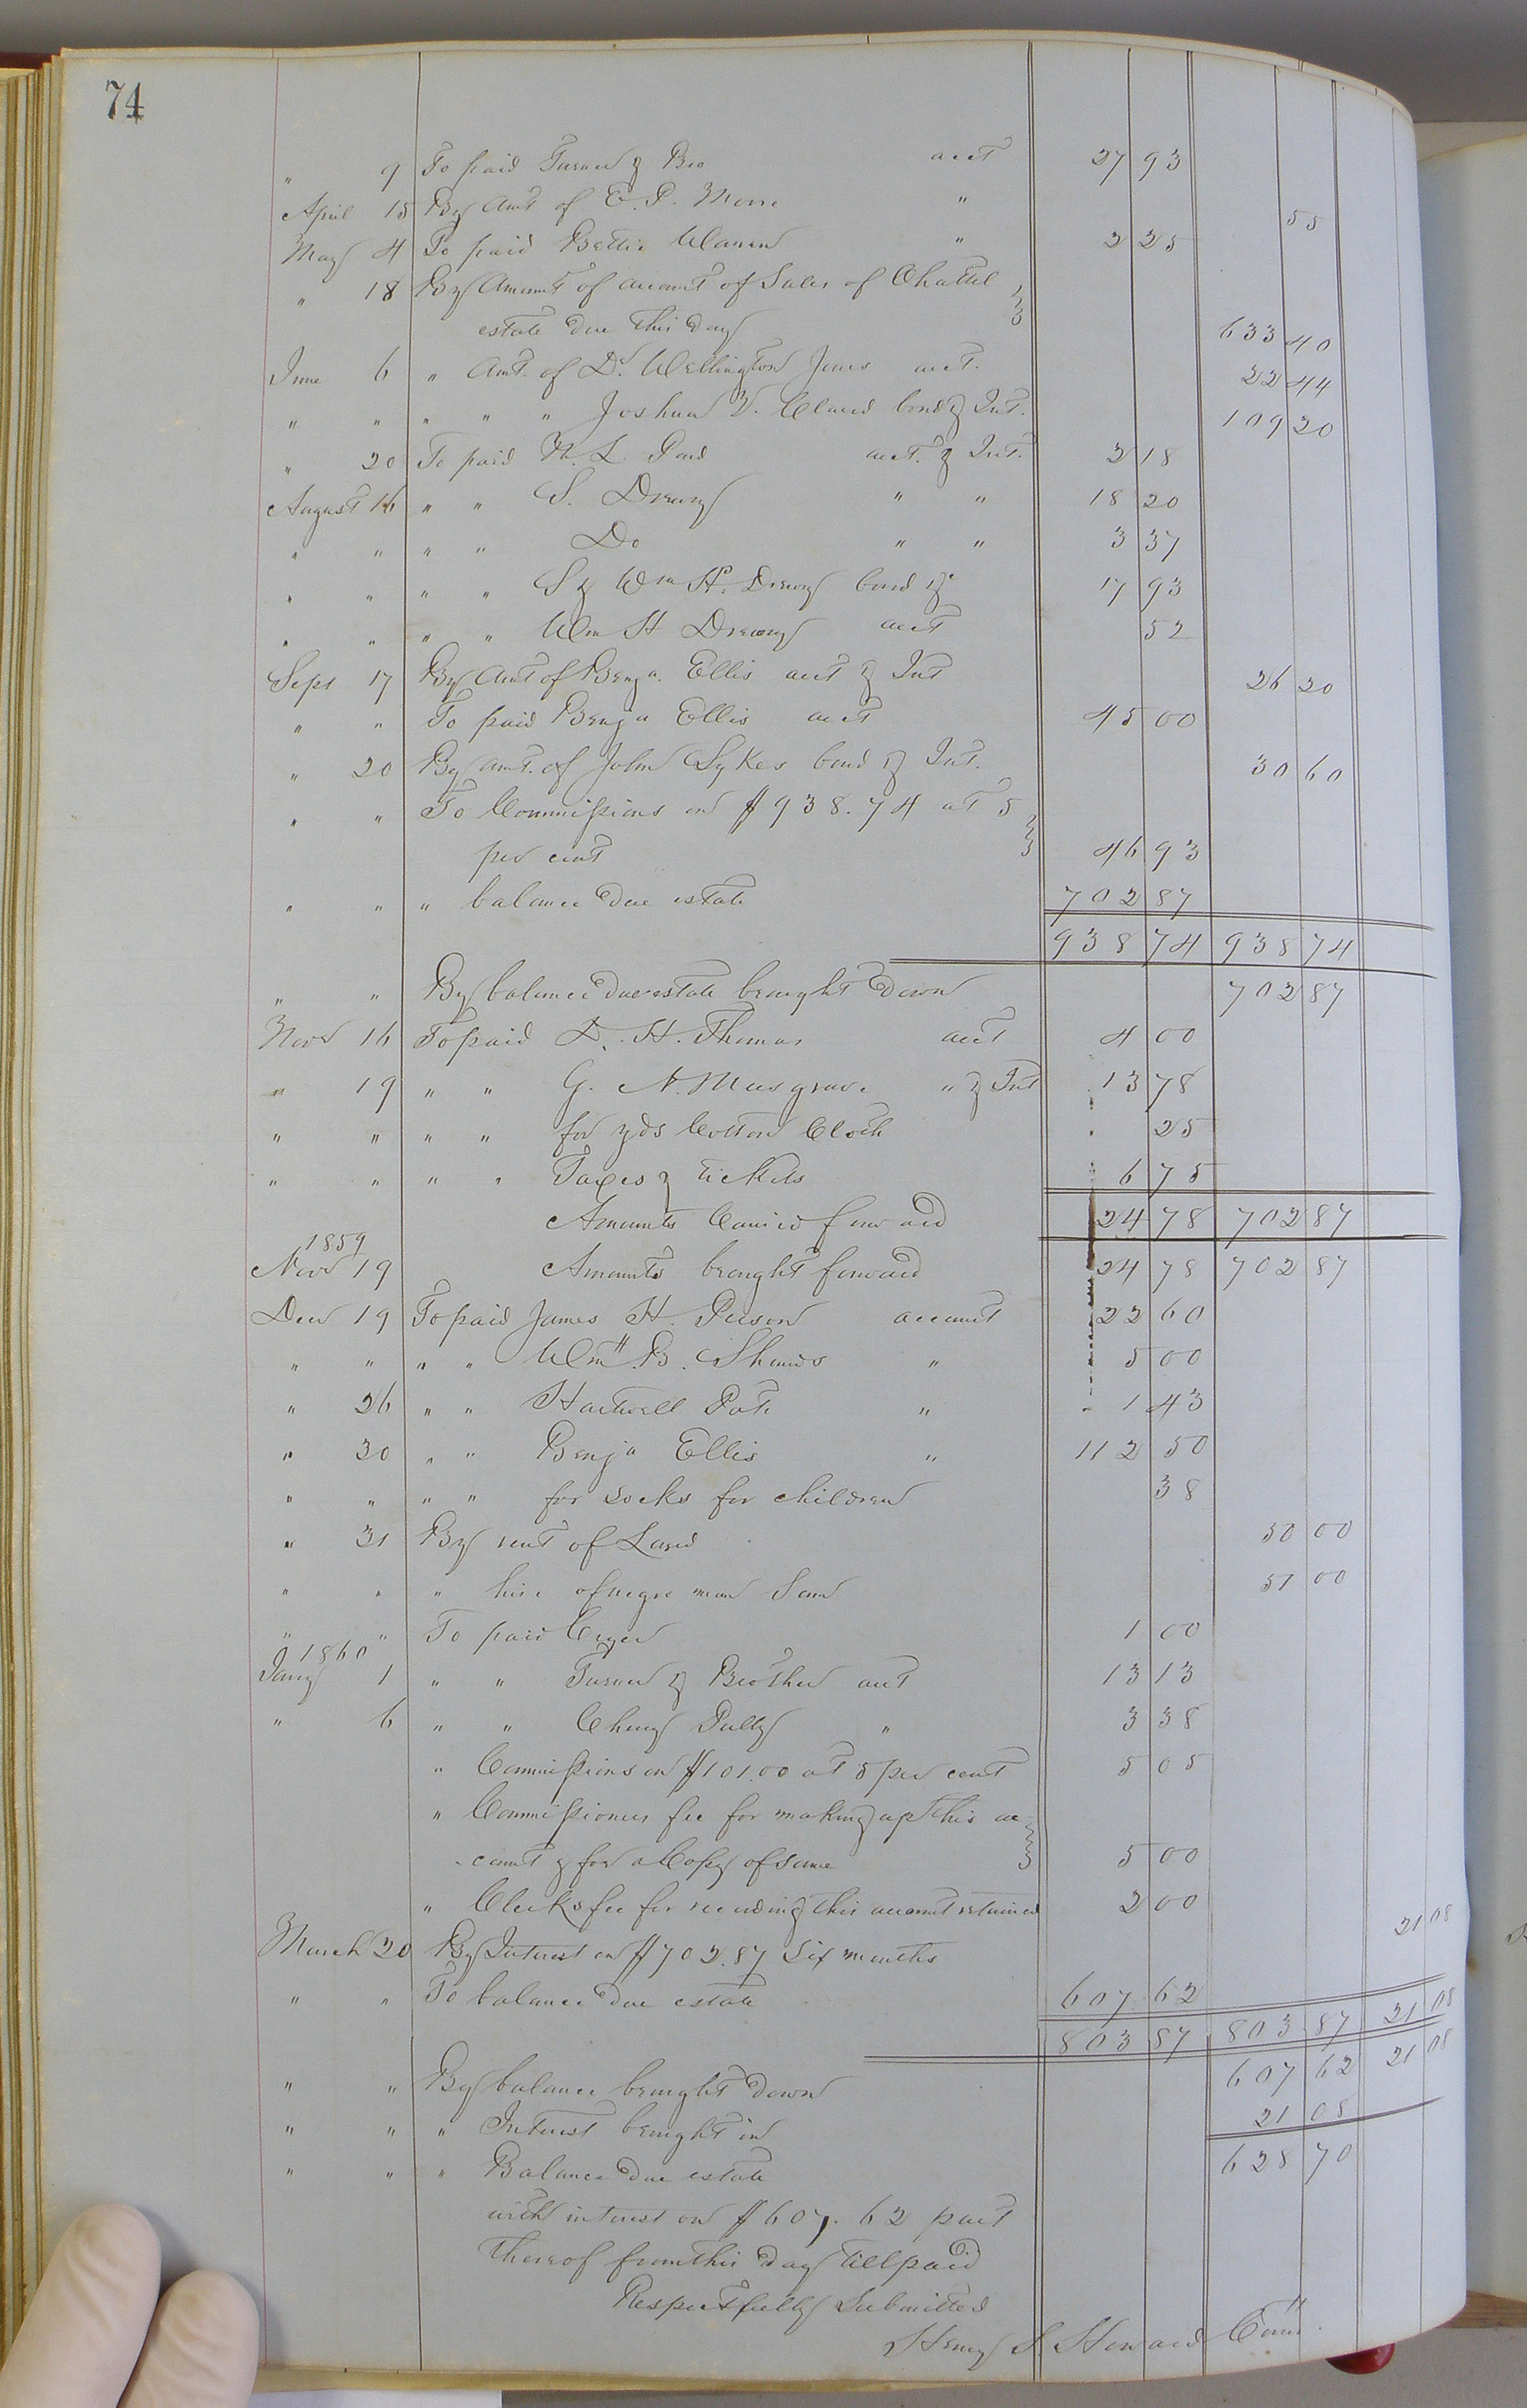 74
" 9 To paid Turner & Bro acct 27 93
April 15 By Amt of E. P. Morse " 55
May 4 To paid Bettie Warren " 2 25
" 18 By Amount of account of Sales of Chattel
estate due this day 633 40
June 6 " Amt. of Dr. Wellington Jones acct. 22 44
" " " " " Joshua V. Claud bond & Int. 109 20
" 20 To paid N. L. Pond acct. & Int. 2 18
August 16 " " S. Drewry " " 18 20
" " " " Do " " 3 37
" " " " S & Wm H. Drewry bond &c 17 93
" " " " Wm H Drewry acct 52
Sept 17 By Amt of Benja. Ellis acct & Int 26 20
" " To paid Benja Ellis acct 45 00
" 20 By amt. of John Sykes bond & Int. 30 60
" " To Commissions on $938.74 at 5
per cent 46 93
" " " balance due estate 702 87
938 74 938 74
" " By balance due estate brought down 702 87
Novr 16 To paid D. H. Thomas acct 4 00
" 19 " " G. N. Musgrave " & Int 13 78
" " " " for yds Cotton Cloth 25
" " " " Taxes & tickets 6 75
Amounts Carried forward 24 78 702 87
1859
Novr 19 Amounts brought forward 24 78 702 87
Decr 19 To paid James H. Person account 22 60
" " " " Wm B. Shands " 5 00
" 26 " " Hartwell Pate " 1 43
" 30 " " Benja Ellis " 112 50
" " " " for socks for children 38
" 31 By rent of Land 50 00
" " " hire of negro man Sam 51 00
" " To paid Cryer 1 00
1860
Jany 1 " " Turner & Brother acct 13 13
" 6 " " Chery Pully " 3 38
" Commissions on $101.00 at 5 per cent 5 05
" Commissioners fee for making up this ac-
-count & for a Copy of same 5 00
" Clerks fee for recording this account retained 2 00
March 20 By Interest on $702.87 Six months 21 08
" " To balance due estate 607 62
803 87 803 87 21 08
" " By balance brought down 607 62 21 08
" " " Interest brought in 21 08
" " " Balance due estate 628 70
with interest on $607.62 part
thereof from this day till paid
Respectfully Submitted
Henry S. Howard Comr.